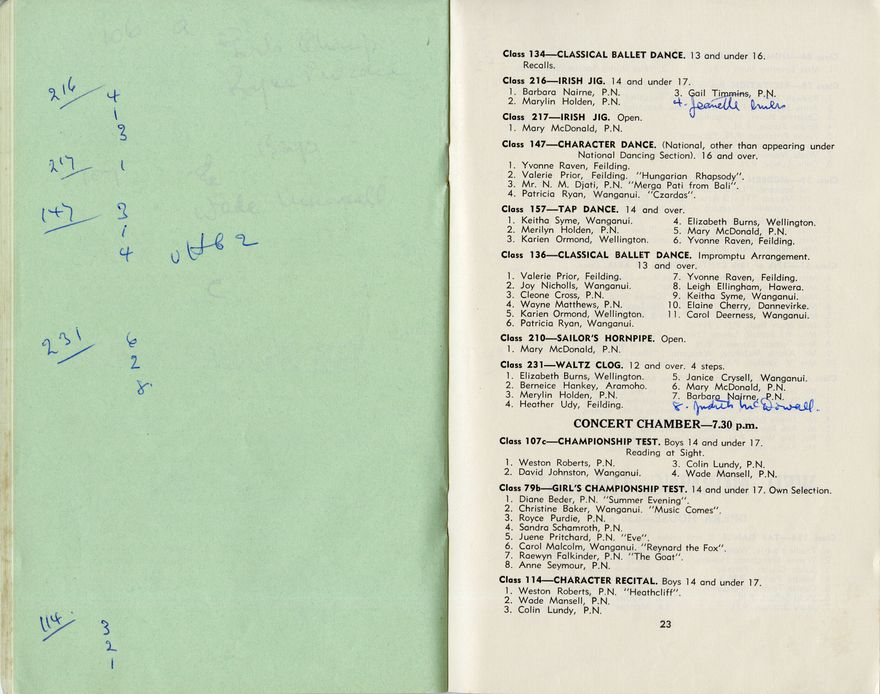 216 4
1
3
217 1
147 3
1
4 2
231 6
2
8
114 3
2
1
Class 134—CLASSICAL BALLET DANCE. 13 and under 16.
Recalls.
Class 216—IRISH JIG. 14 and under 17.
1. Barbara Nairne, P.N. 3. Gail Timmins, P.N.
2. Marylin Holden, P.N. 4. Jeanette
Class 217—IRISH JIG. Open.
1. Mary McDonald, P.N.
Class 147—CHARACTER DANCE. (National, other than appearing under
National Dancing Section). 16 and over.
1. Yvonne Raven, Feilding.
2. Valerie Prior, Feilding. "Hungarian Rhapsody".
3. Mr. N. M. Djati, P.N. "Merga Pati from Bali".
4. Patricia Ryan, Wanganui. "Czardas".
Class 157—TAP DANCE. 14 and over.
1. Keitha Syme, Wanganui. 4. Elizabeth Burns, Wellington.
2. Merilyn Holden, P.N. 5. Mary McDonald, P.N.
3. Karien Ormond, Wellington. 6. Yvonne Raven, Feilding.
Class 136—CLASSICAL BALLET DANCE. Impromptu Arrangement.
13 and over.
1. Valerie Prior, Feilding. 7. Yvonne Raven, Feilding.
2. Joy Nicholls, Wanganui. 8. Leigh Ellingham, Hawera.
3. Cleone Cross, P.N. 9. Keitha Syme, Wanganui.
4. Wayne Matthews, P.N. 10. Elaine Cherry, Dannevirke.
5. Karien Ormond, Wellington. 11. Carol Deerness, Wanganui.
6. Patricia Ryan, Wanganui.
Class 210—SAILOR'S HORNPIPE. Open.
1. Mary McDonald, P.N.
Class 231—WALTZ CLOG. 12 and over. 4 steps.
1. Elizabeth Burns, Wellington. 5. Janice Crysell, Wanganui.
2. Berneice Hankey, Aramoho. 6. Mary McDonald, P.N.
3. Merylin Holden, P.N. 7. Barbara Nairne, P.N.
4. Heather Udy, Feilding. 8. Judith McDowall.
CONCERT CHAMBER—7.30 p.m.
Class 107c—CHAMPIONSHIP TEST. Boys 14 and under 17.
Reading at Sight.
1. Weston Roberts, P.N. 3. Colin Lundy, P.N.
2. David Johnston, Wanganui. 4. Wade Mansell, P.N.
Class 79b—GIRL'S CHAMPIONSHIP TEST. 14 and under 17. Own Selection.
1. Diane Beder, P.N. "Summer Evening".
2. Christine Baker, Wanganui. "Music Comes".
3. Royce Purdie, P.N.
4. Sandra Schamroth, P.N.
5. Juene Pritchard, P.N. "Eve".
6. Carol Malcolm, Wanganui. "Reynard the Fox".
7. Raewyn Falkinder, P.N. "The Goat".
8. Anne Seymour, P.N.
Class 114—CHARACTER RECITAL. Boys 14 and under 17.
1. Weston Roberts, P.N. "Heathcliff".
2. Wade Mansell, P.N.
3. Colin Lundy, P.N.
23